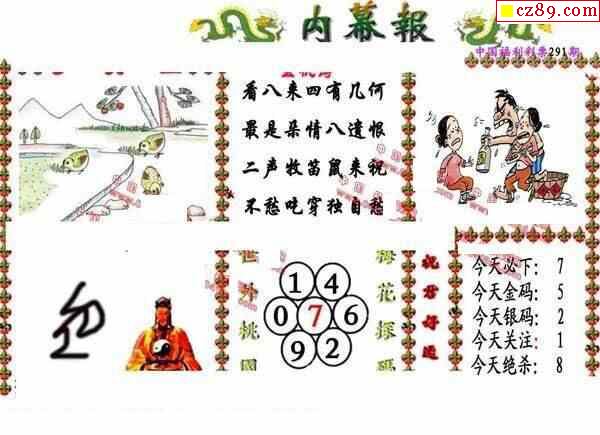 cz89.com
内幕報
中国福利彩票291期
看八来四有几何
最是柔情八遗恨
二声牧笛鼠来祝
不愁吃穿独自愁
世外桃園
1 4
0 7 6
9 2
梅花探码
祝君好运
今天必下: 7
今天金码: 5
今天银码: 2
今天关注: 1
今天绝杀: 8